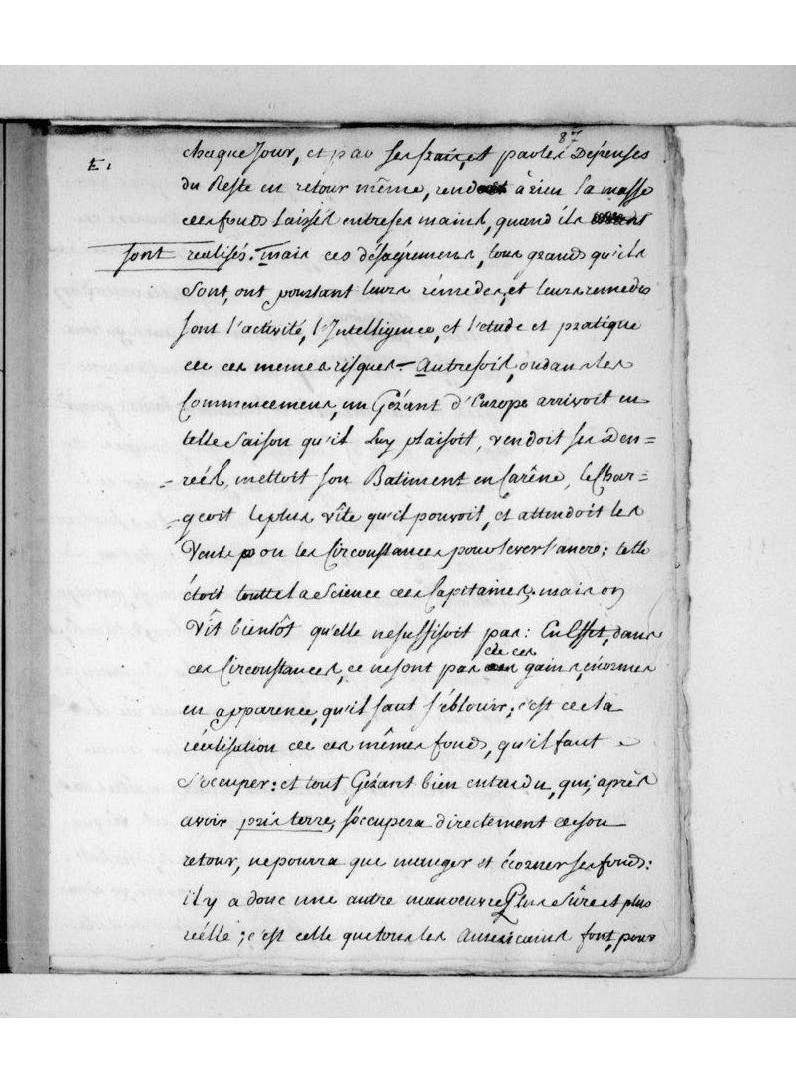 87
E.
chaque Jour, et par ses frais, et par les Depenses
du Reste en retour même, rend à rien la masse
des fonds laissés entre ses mains, quand ils
sont realisés. mais ces désagrémens, tous grands qu'ils
sont, ont pourtant leurs rémedes, et leurs remedes
sont l'activité, l'Intelligence, et l'étude et pratique
de ces memes risques - Autrefois, ou dans les
Commencemens, un Gérant d'Europe arrivoit en
telle Saison qu'il Luy plaisoit, vendoit ses Den=
=rées, mettoit son Batiment en Carêne, le Char=
=geoit le plus vîte qu'il pouvoit, et attendoit les
Vents ou les Circonstances pour lever l'ancre; telle
étoit toutte La Science des Capitaines. mais on
Vît bientôt qu'elle ne suffisoit pas: En Effet, dans
ces Circonstances, ce ne sont pas de ces gains, énormes
en apparence, qu'il faut s'éblouir; c'est de la
réalisation de ces mêmes fonds, qu'il faut
s'occuper: et tout Gérant bien entendu, qui, après
avoir pris terre, s'occupera directement de son
retour, ne pourra que manger et écorner ses fonds:
il y a donc une autre manoeuvre Plus Sûre et plus
réelle; c'est celle que tous les Americains font, pour